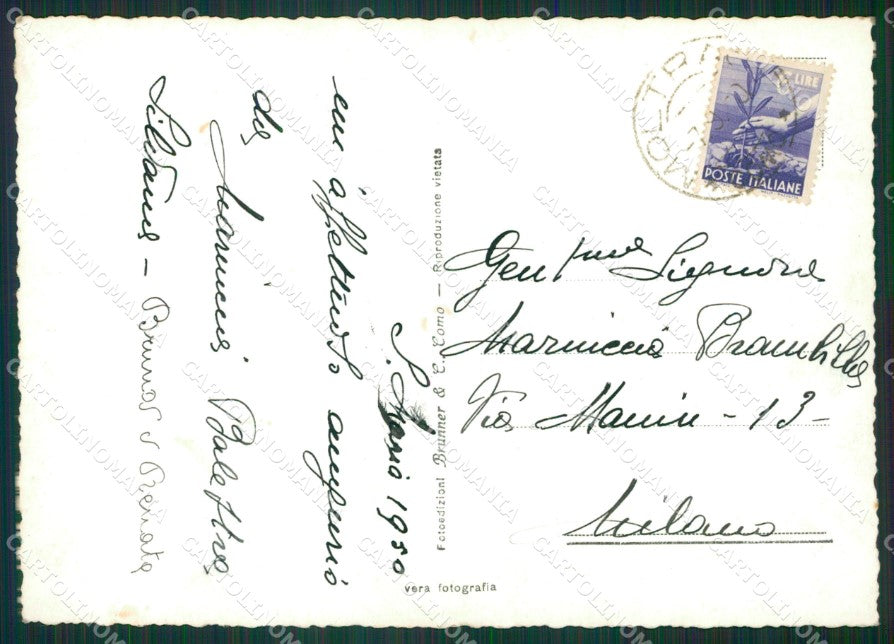 S. Maria 1950
un affettuoso augurio
da Mariuccia Balestra
Silvana - Bruna e Renata
Fotoedizioni Brunner & C. Como — Riproduzione vietata
vera fotografia
LIRE
POSTE ITALIANE
Gent.ma Signora
Mariuccia Brambilla
Via Manin - 13 -
Milano
CARTOLINOMANIA